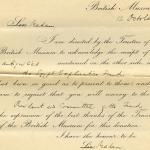 British Museum
12 October
Sir / Madam
I am directed by the Trustees of
British Museum to acknowledge the receipt of
mentioned on the other side
the Egypt Exploration Fund
has been so good as to present to them and
to request that you will convey to the
President and Committee of the Fund
the expression of the best thanks of the Trustees
of the British Museum for this donation
I have the honour to be
Sir / Madam